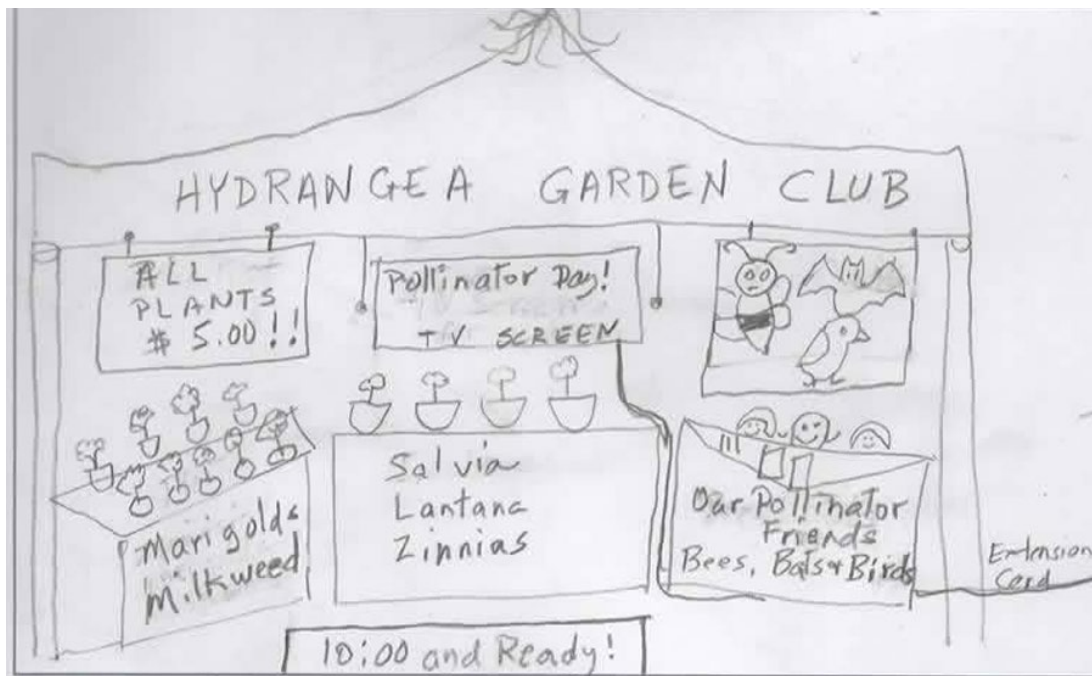 HYDRANGEA GARDEN CLUB
ALL
PLANTS
$ 5.00!!
Pollinator Day!
TV SCREEN
Marigolds
Milkweed
Salvia
Lantana
Zinnias
Our Pollinator
Friends
Bees, Bats & Birds
Extension
Cord
10:00 and Ready!